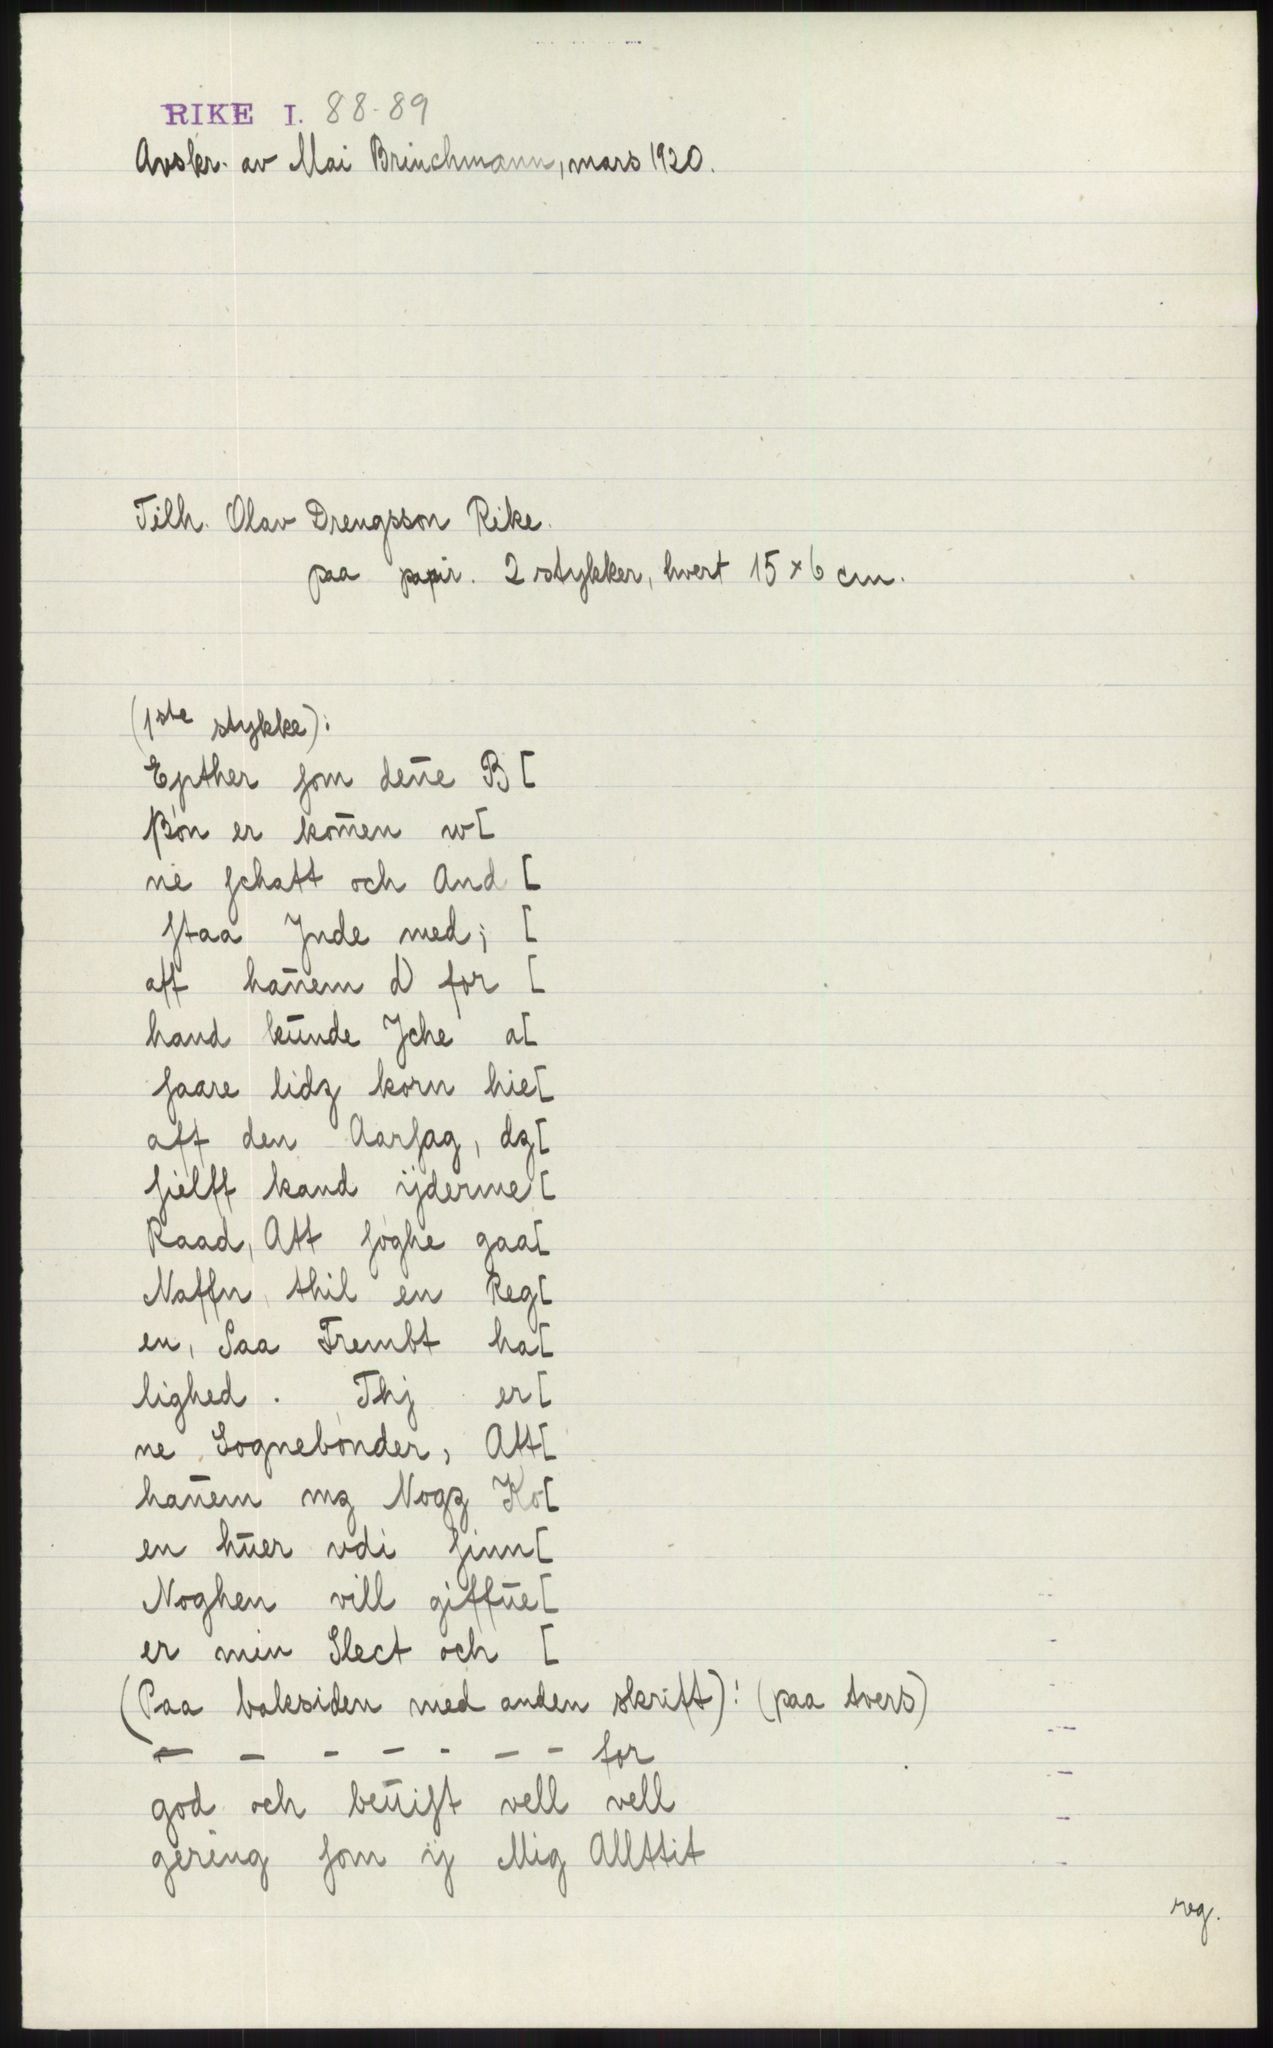 RIKE I. 88-89
Avskr. av Mai Brinchmann, mars 1920.
Tilh. Olav Drengsson Rike.
paa papir. 2 stykker, hvert 15 × 6 cm.
(1ste stykke):
Epther ſom den̄e B [
Bön er kom̄en w [
ne ſchatt och And [
ſtaa Jnde med; [
aff han̄em d for [
hand kūnde Jche a [
ſaare lidz korn hie [
aff den Aarſag, dz [
ſielff kand ÿderme [
Raad, Att ſöghe gaa [
Naffn thil en Reg [
en, Saa Frembt ha [
lighed. Thj er [
ne Sognebönder, Att [
han̄em mz Nogz Ko [
en hūer vdi ſinn [
Noghen vill giffūe [
er min Slect och [
(Paa baksiden med anden skrift): (paa tvers)
— — - — - — - for
god och beūiſt vell vell
gering ſom ÿ Mig Allttit
reg.